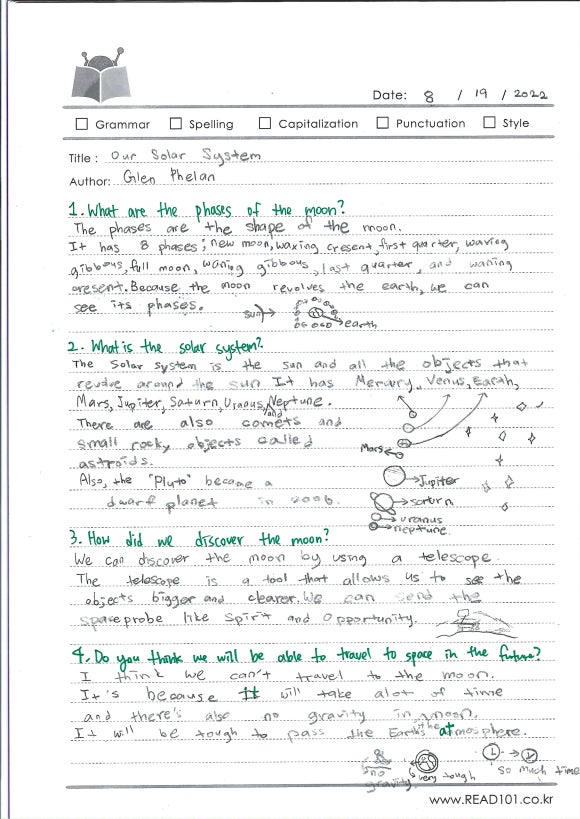 Date: 8 / 19 / 2022
Grammar Spelling Capitalization Punctuation Style
Title : Our Solar System
Author: Glen Phelan
1. What are the phases of the moon?
The phases are the shape of the moon.
It has 8 phases; new moon, waxing cresent, first quarter, waxing
gibbous, full moon, waning gibbous, last quarter, and waning
cresent. Because the moon revolves the earth, we can
see its phases.
sun
earth
2. What is the solar system?
The Solar System is the sun and all the objects that
revolve around the sun It has Mercury, Venus, Earth,
Mars, Jupiter, Saturn, Uranus, and Neptune.
There are also comets and
small rocky objects called
astroids.
Also, the "Pluto" became a
dwarf planet in 2006.
Mars
Jupiter
saturn
uranus
neptune
3. How did we discover the moon?
We can discover the moon by using a telescope.
The telescope is a tool that allows us to see the
objects bigger and clearer. We can send the
spaceprobe like Spirit and Opportunity.
4. Do you think we will be able to travel to space in the future?
I think we can't travel to the moon.
It's because it will take alot of time
and there's also no gravity in moon.
It will be tough to pass the Earth's the atmosphere.
no
gravity
very tough
so much time
www.READ101.co.kr